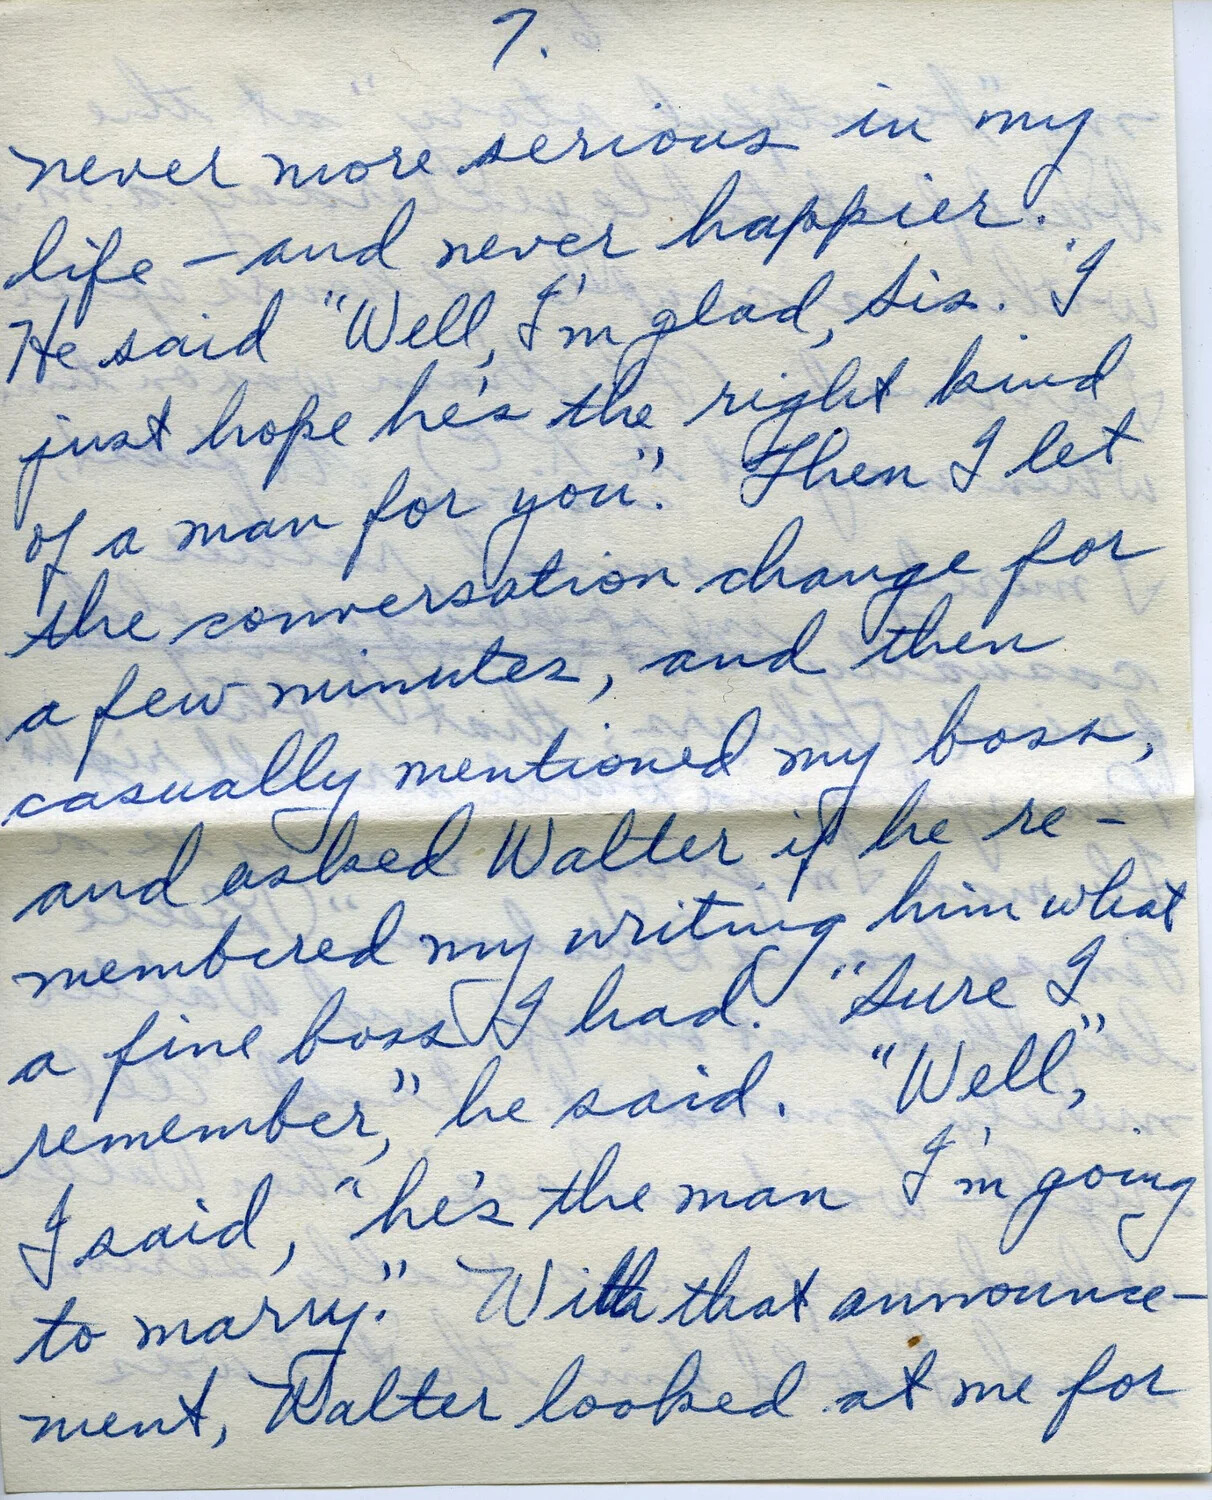 7.
never more serious in my
life – and never happier.
He said "Well, I'm glad, Sis. I
just hope he's the right kind
of a man for you". Then I let
the conversation change for
a few minutes, and then
casually mentioned my boss,
and asked Walter if he re-
membered my writing him what
a fine boss I had. "Sure I
remember," he said. "Well,"
I said, "he's the man I'm going
to marry." With that announce-
ment, Walter looked at me for